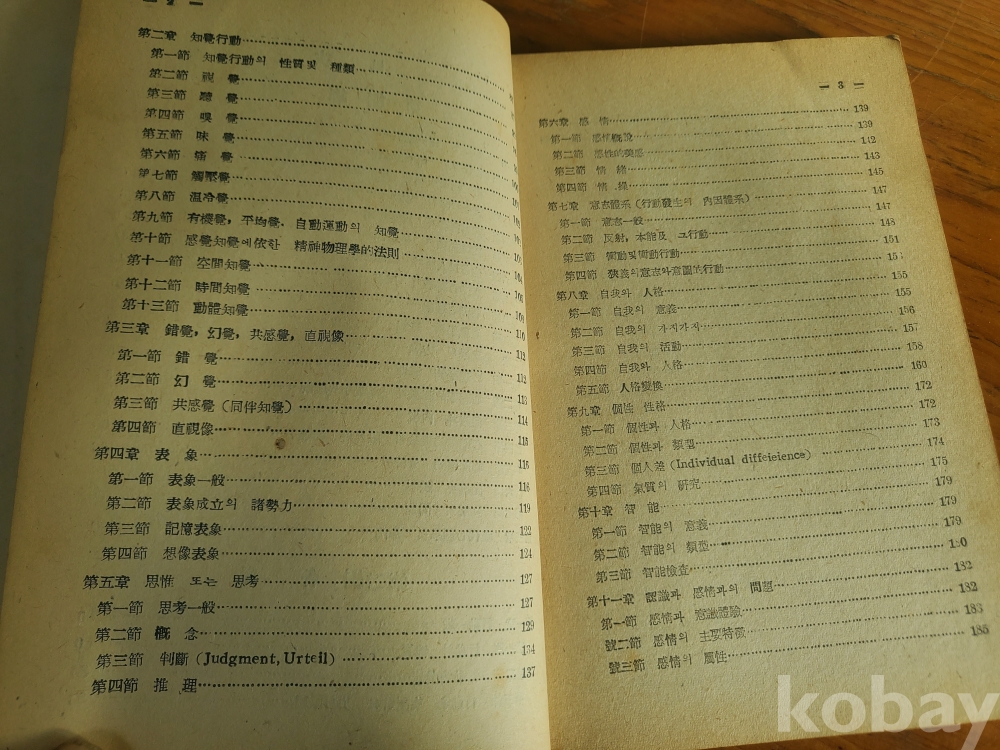 — 2 —
第二章 知覺行動
第一節 知覺行動의 性質및 種類
第二節 視 覺
第三節 聽 覺
第四節 嗅 覺
第五節 味 覺
第六節 痛 覺
第七節 觸壓覺
第八節 溫冷覺
第九節 有機覺, 平均覺, 自動運動의 知覺
第十節 感覺知覺에依한 精神物理學的法則
第十一節 空間知覺
第十二節 時間知覺 108
第十三節 動體知覺 109
第三章 錯覺, 幻覺, 共感覺, 直視像 110
第一節 錯 覺 112
第二節 幻 覺 112
第三節 共感覺(同伴知覺) 113
第四節 直視像 114
115
第四章 表 象 116
第一節 表象一般 118
第二節 表象成立의 諸勢力 119
第三節 記憶表象 122
第四節 想像表象 124
第五章 思惟 또는 思考 127
第一節 思考一般 127
第二節 槪 念 129
第三節 判斷(Judgment, Urteil) 134
第四節 推 理 137
— 3 —
第六章 感 情 139
第一節 感情槪說 139
第二節 感性的美感 142
第三節 情 緖 143
第四節 情 操 145
第七章 意志體系(行動發生의 內因體系) 147
第一節 意志一般 147
第二節 反射, 本能及 그行動 148
第三節 衝動및衝動行動 151
第四節 狹義의意志와意圖的行動
第八章 自我와 人格 155
第一節 自我의 意義 155
第二節 自我의 가지가지 156
第三節 自我의 活動 157
第四節 自我와 人格 158
第五節 人格變換 160
第九章 個性 性格 172
第一節 個性과 人格 172
第二節 個性과 類型 173
第三節 個人差(Individual diffeieience) 174
第四節 氣質의 硏究 175
第十章 智 能 179
第一節 智能의 意義 179
第二節 智能의 類型 179
第三節 智能檢査
第十一章 認識과 感情과의 問題 182
第一節 感情과 意識體驗 182
號二節 感情의 主要特徵 183
號三節 感情의 屬性 185
kobay